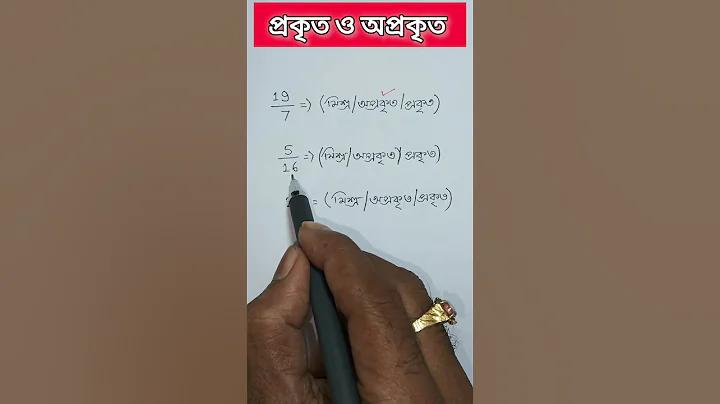 প্রকৃত ও অপ্রকৃত
19/7 => (মিশ্র/অপ্রকৃত/প্রকৃত)
5/16 => (মিশ্র/অপ্রকৃত/প্রকৃত)
= (মিশ্র/অপ্রকৃত/প্রকৃত)